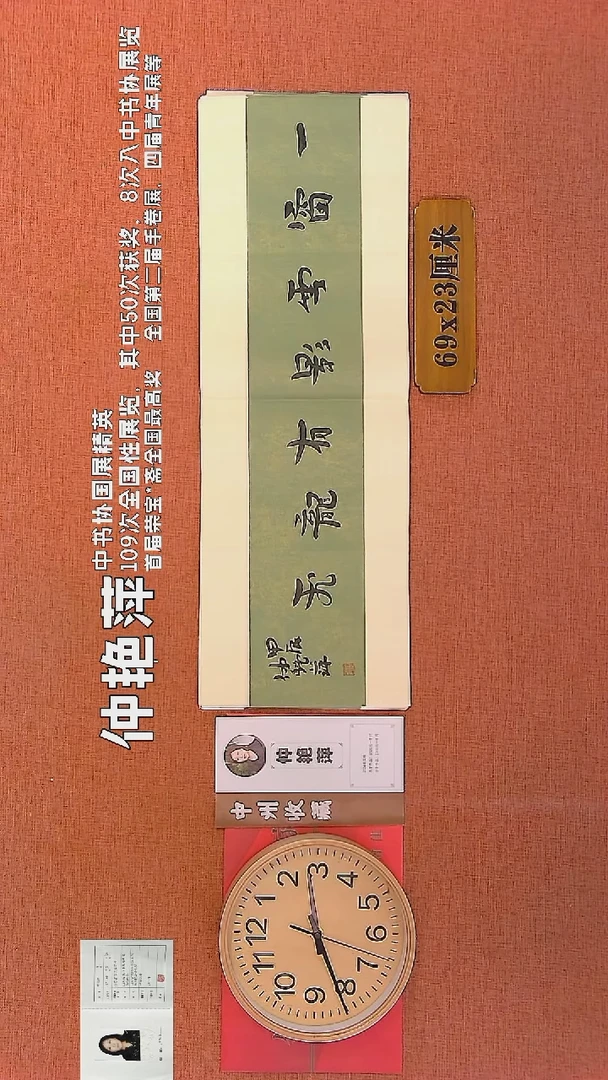 中书协国展精英
仲艳萍
109次全国性展览，其中50次获奖，8次入中书协展览
首届荣宝*斋全国最高奖 全国第二届手卷展、四届青年展等
一
雲影有龍无
甲辰
仲艳萍
69x23厘米
仲艳萍
中州收藏
12
1
2
3
4
5
6
7
8
9
10
11